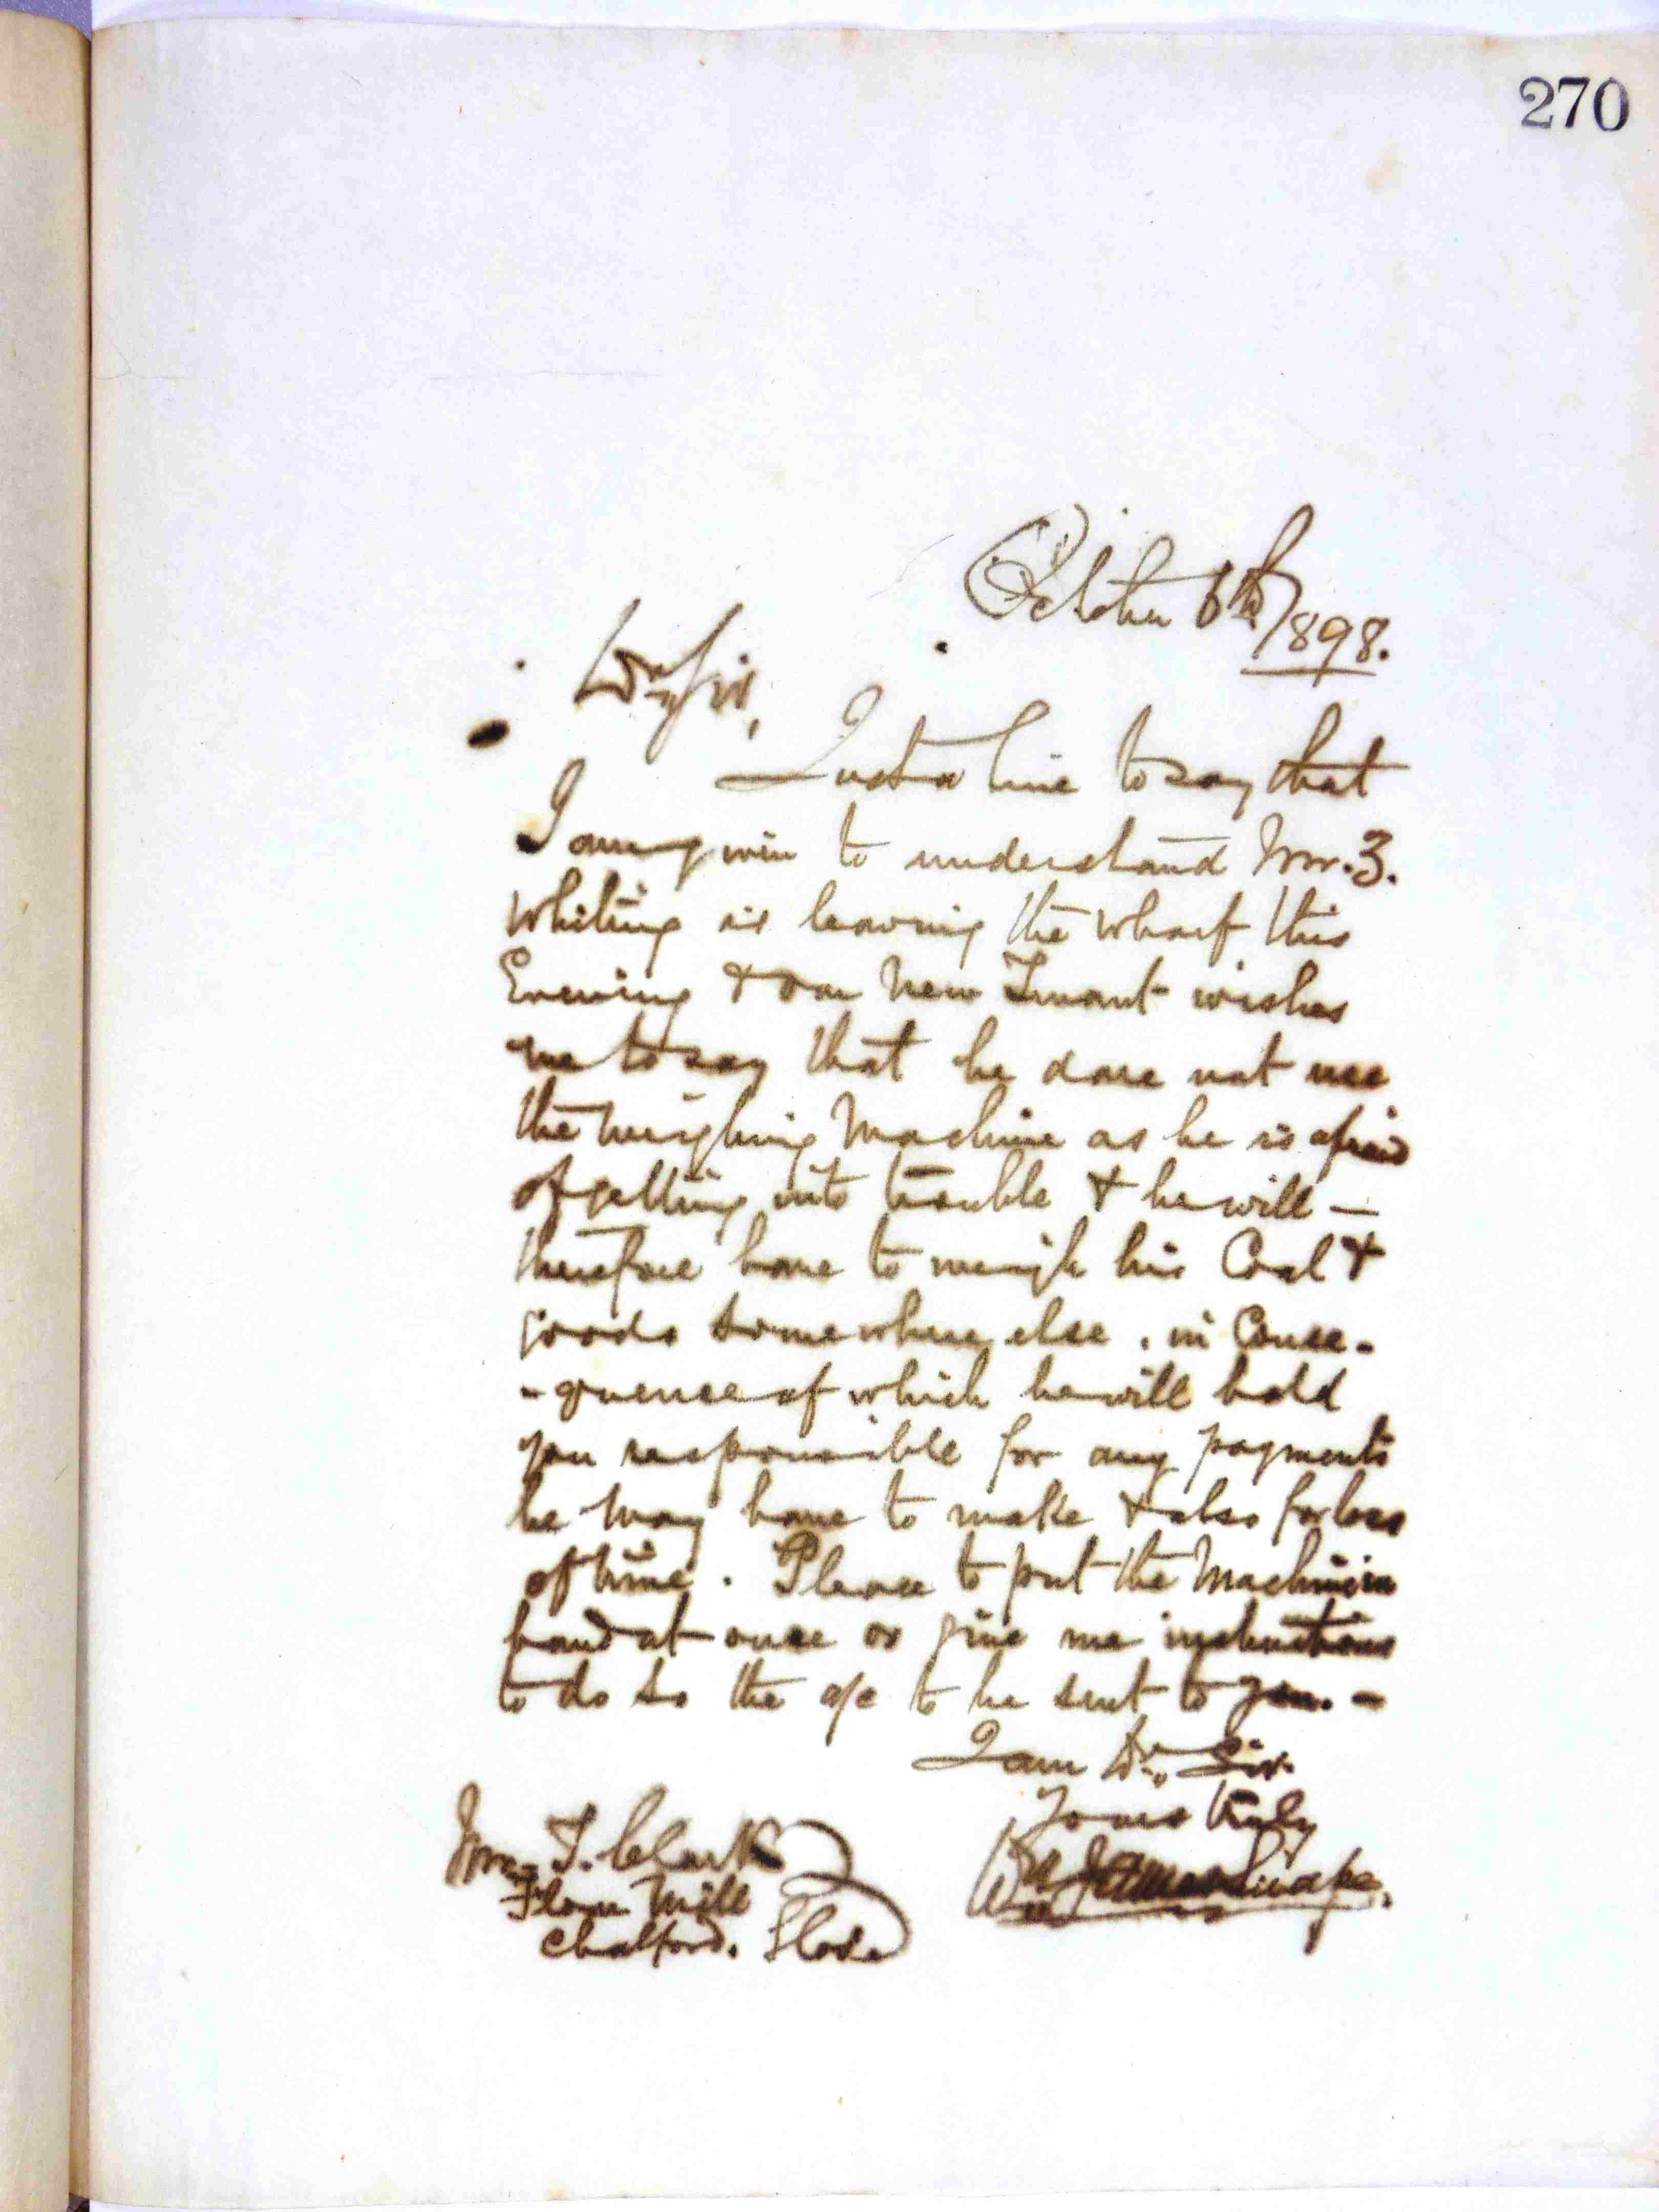 270
October 6th/1898.
Dr Sir,
Just a line to say that
I am given to understand Mr. Z.
Whiting is leaving the Wharf this
Evening & our New Tenant wishes
me to say that he dare not use
the Weighing Machine as he is afraid
of getting into trouble & he will —
therefore have to weigh his Coal &
goods somewhere else. in Conse-
-quence of which he will hold
you responsible for any payments
he may have to make & also for loss
of time. Please to put the Machine in
hand at once or give me instructions
to do so the a/c to be sent to you. -
I am Dr Sir
Yours truly
Wm James Snape.
Mr T. Clark
Flour Mill
Chalford. Glos